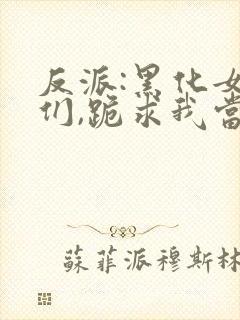 反派:黑化女
们,跪求我當
蘇菲派穆斯林